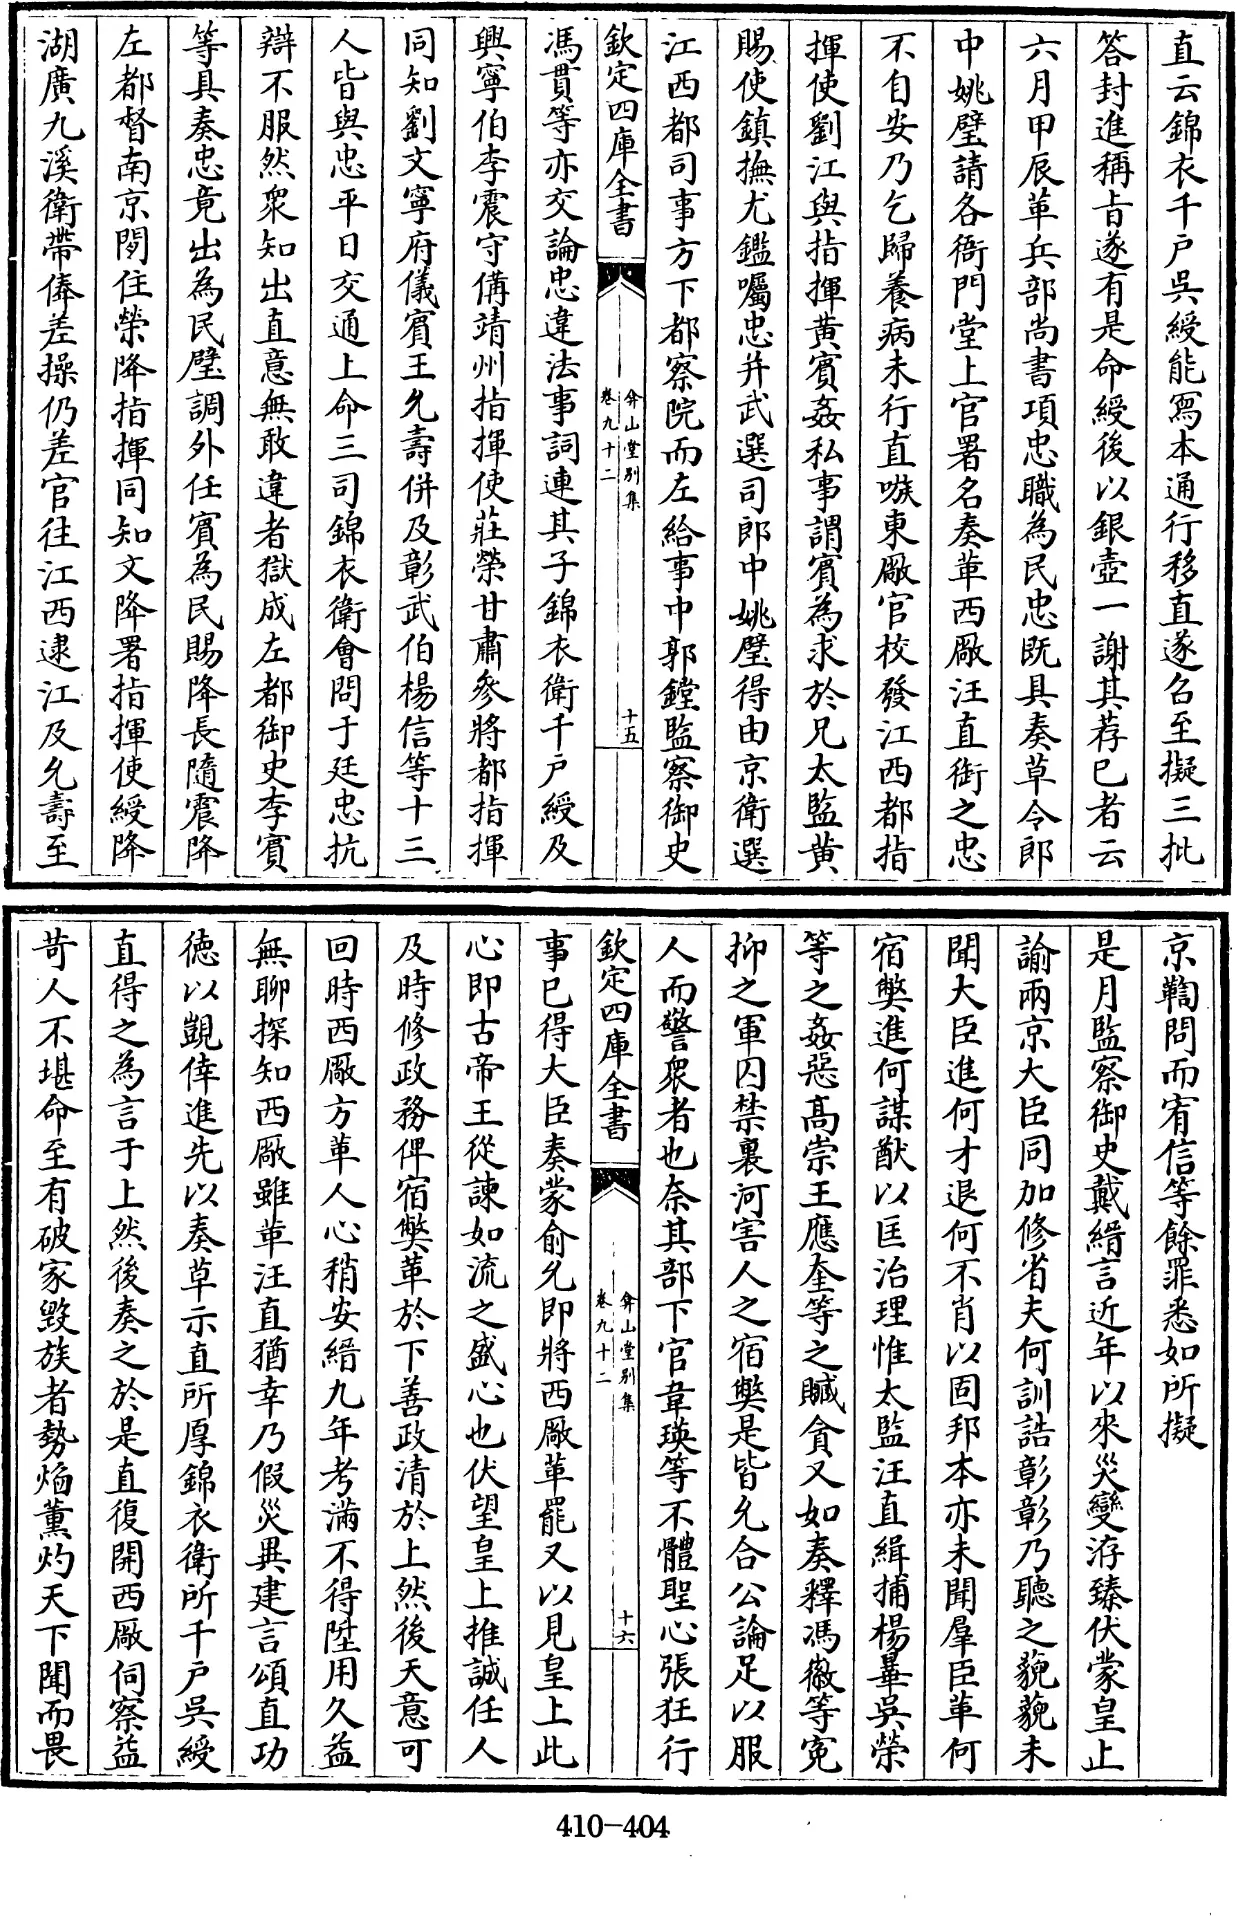 直云錦衣千戶吳綬能寫本通行移直遂召至擬三批
答封進稱旨遂有是命綬後以銀壺一謝其荐己者云
六月甲辰革兵部尚書項忠職為民忠既具奏草令郎
中姚璧請各衙門堂上官署名奏革西廠汪直銜之忠
不自安乃乞歸養病未行直嗾東廠官校發江西都指
揮使劉江與指揮黄賓姦私事謂賓為求於兄太監黄
賜使鎮撫尤鑑囑忠并武選司郎中姚璧得由京衛選
江西都司事方下都察院而左給事中郭鏜監察御史
欽定四庫全書
弇山堂别集
卷九十二
十五
馮貫等亦交論忠違法事詞連其子錦衣衛千戶綬及
興寧伯李震守備靖州指揮使莊榮甘肅參將都指揮
同知劉文寧府儀賓王允壽併及彰武伯楊信等十三
人皆與忠平日交通上命三司錦衣衛會問于廷忠抗
辯不服然衆知出直意無敢違者獄成左都御史李賓
等具奏忠竟出為民璧調外任賓為民賜降長隨震降
左都督南京閒住榮降指揮同知文降署指揮使綬降
湖廣九溪衛帶俸差操仍差官往江西逮江及允壽至
京鞫問而宥信等餘罪悉如所擬
是月監察御史戴縉言近年以來災變洊臻伏蒙皇上
諭兩京大臣同加修省夫何訓誥彰彰乃聽之藐藐未
聞大臣進何才退何不肖以固邦本亦未聞羣臣革何
宿獘進何謀猷以匡治理惟太監汪直緝捕楊曅吳榮
等之姦惡高崇王應奎等之贓貪又如奏釋馮徽等寃
抑之軍囚禁裏河害人之宿獘是皆允合公論足以服
人而警衆者也奈其部下官韋瑛等不體聖心張狂行
欽定四庫全書
弇山堂别集
卷九十二
十六
事已得大臣奏蒙俞允即將西廠革罷又以見皇上此
心即古帝王從諫如流之盛心也伏望皇上推誠任人
及時修政務俾宿獘革於下善政清於上然後天意可
回時西廠方革人心稍安縉九年考滿不得陞用久益
無聊探知西廠雖革汪直猶幸乃假災異建言頌直功
德以覬倖進先以奏草示直所厚錦衣衛所千戶吳綬
直得之為言于上然後奏之於是直復開西廠伺察益
苛人不堪命至有破家毀族者勢焰薰灼天下聞而畏
410-404